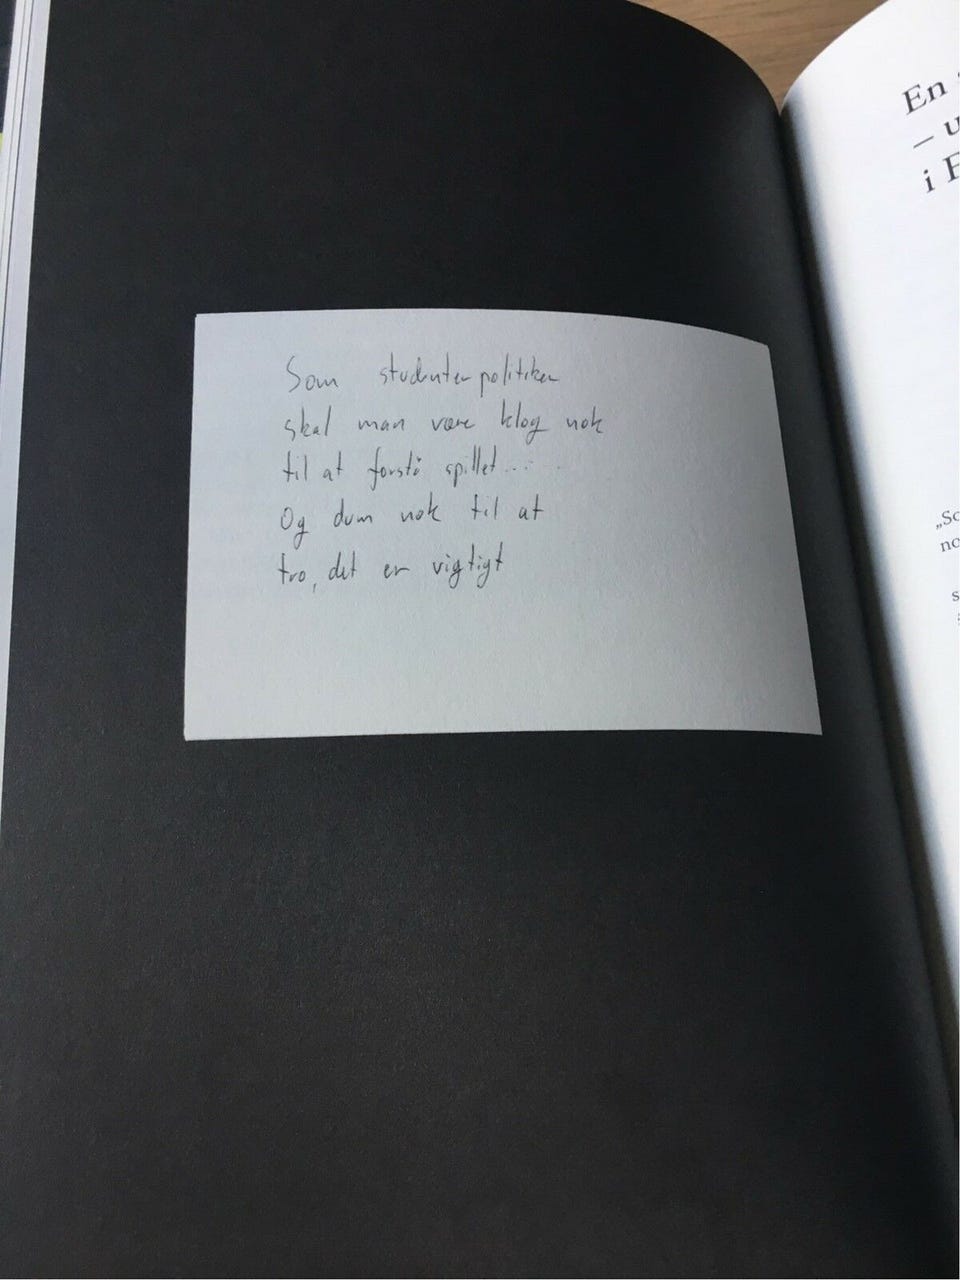 Som studenterpolitiker
skal man være klog nok
til at forstå spillet...
Og dum nok til at
tro, det er vigtigt
En
–
i
no